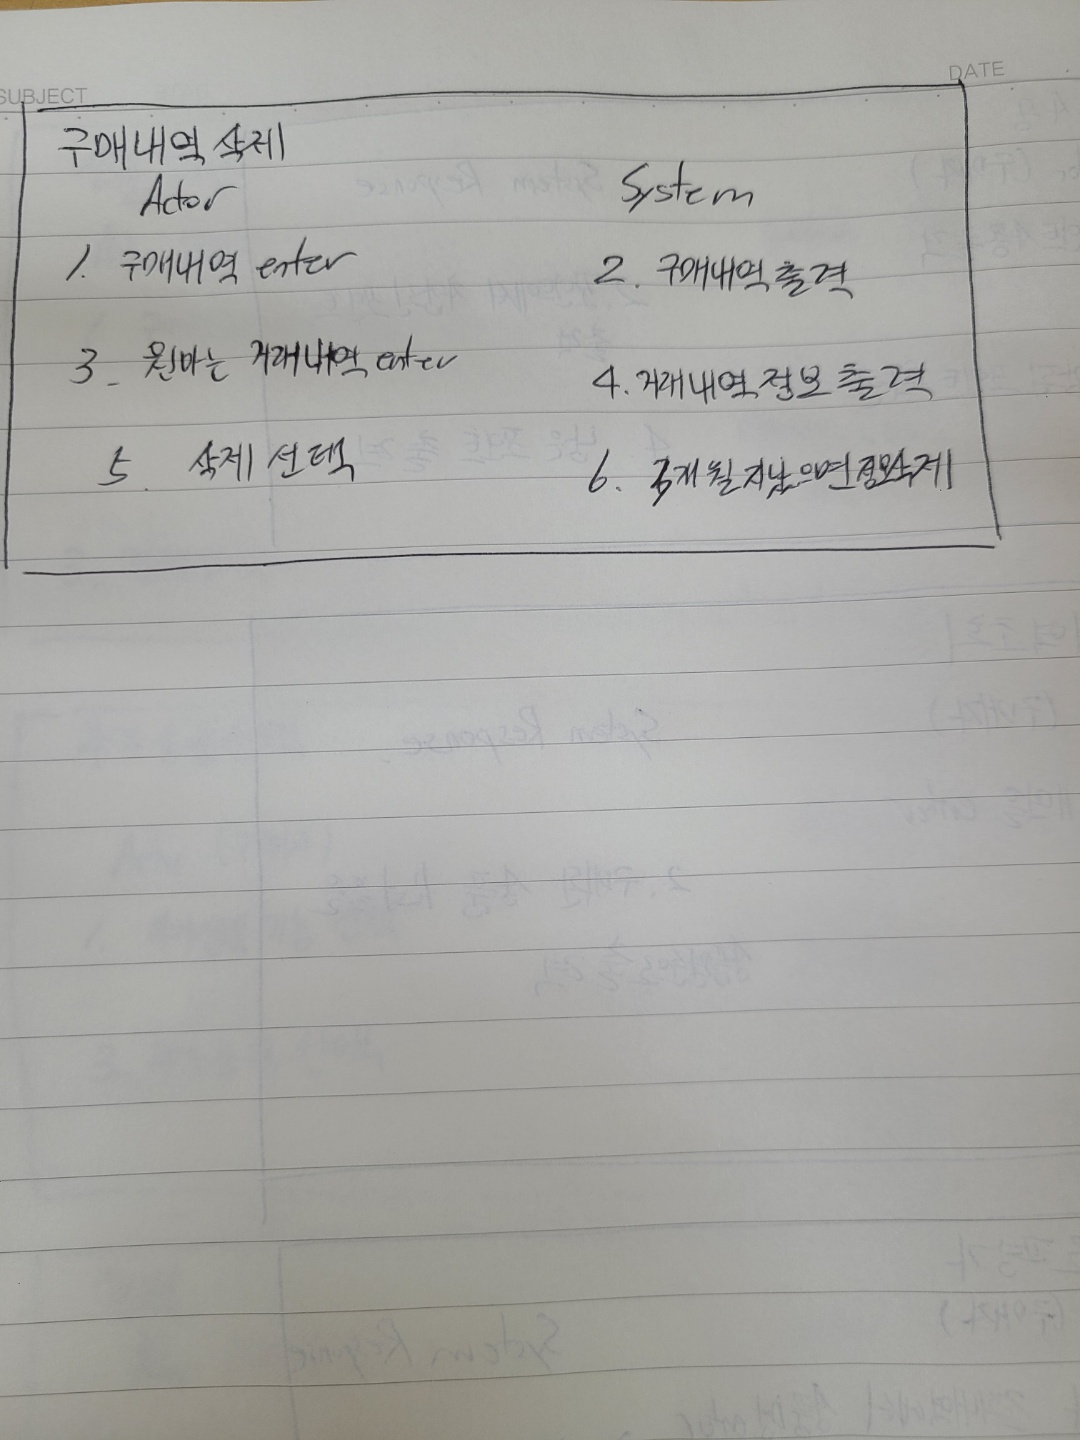 SUBJECT
DATE
구매내역 삭제
Actor
System
1. 구매내역 enter
2. 구매내역 출력
3. 원하는 거래내역 enter
4. 거래내역 정보 출력
5. 삭제 선택
6. 개월 지났으면 정보삭제